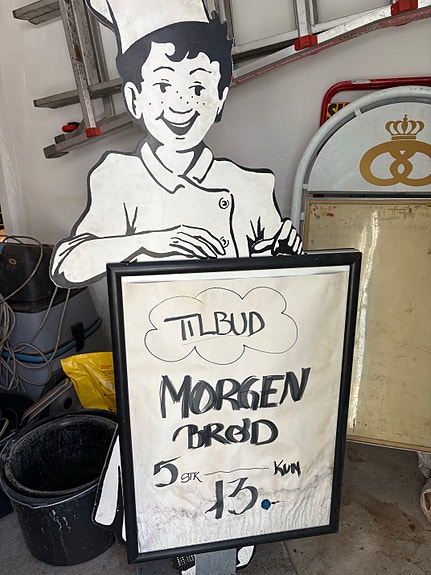 TILBUD
MORGEN
BRØD
5 STK — KUN
13.-